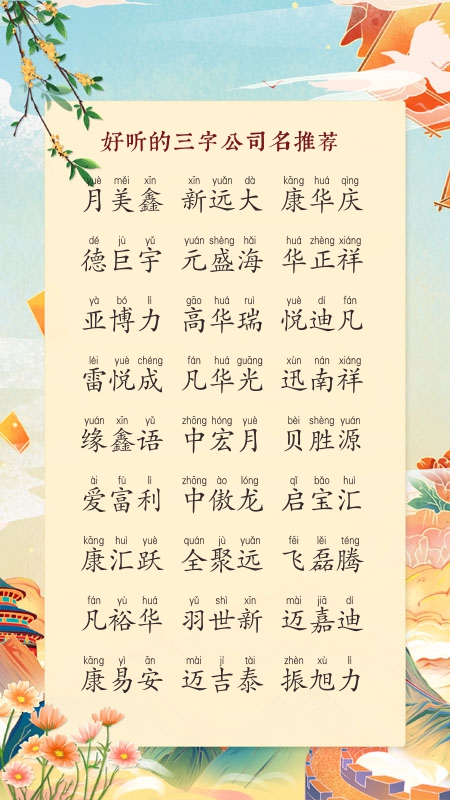 好听的三字公司名推荐
yuè měi xīn xīn yuǎn dà kāng huá qìng
月美鑫 新远大 康华庆
dé jù yǔ yuán shèng hǎi huá zhèng xiáng
德巨宇 元盛海 华正祥
yà bó lì gāo huá ruì yuè dí fán
亚博力 高华瑞 悦迪凡
léi yuè chéng fán huá guāng xùn nán xiáng
雷悦成 凡华光 迅南祥
yuán xīn yǔ zhōng hóng yuè bèi shèng yuán
缘鑫语 中宏月 贝胜源
ài fù lì zhōng ào lóng qǐ bǎo huì
爱富利 中傲龙 启宝汇
kāng huì yuè quán jù yuǎn fēi lěi téng
康汇跃 全聚远 飞磊腾
fán yù huá yǔ shì xīn mài jiā dí
凡裕华 羽世新 迈嘉迪
kāng yì ān mài jí tài zhèn xù lì
康易安 迈吉泰 振旭力